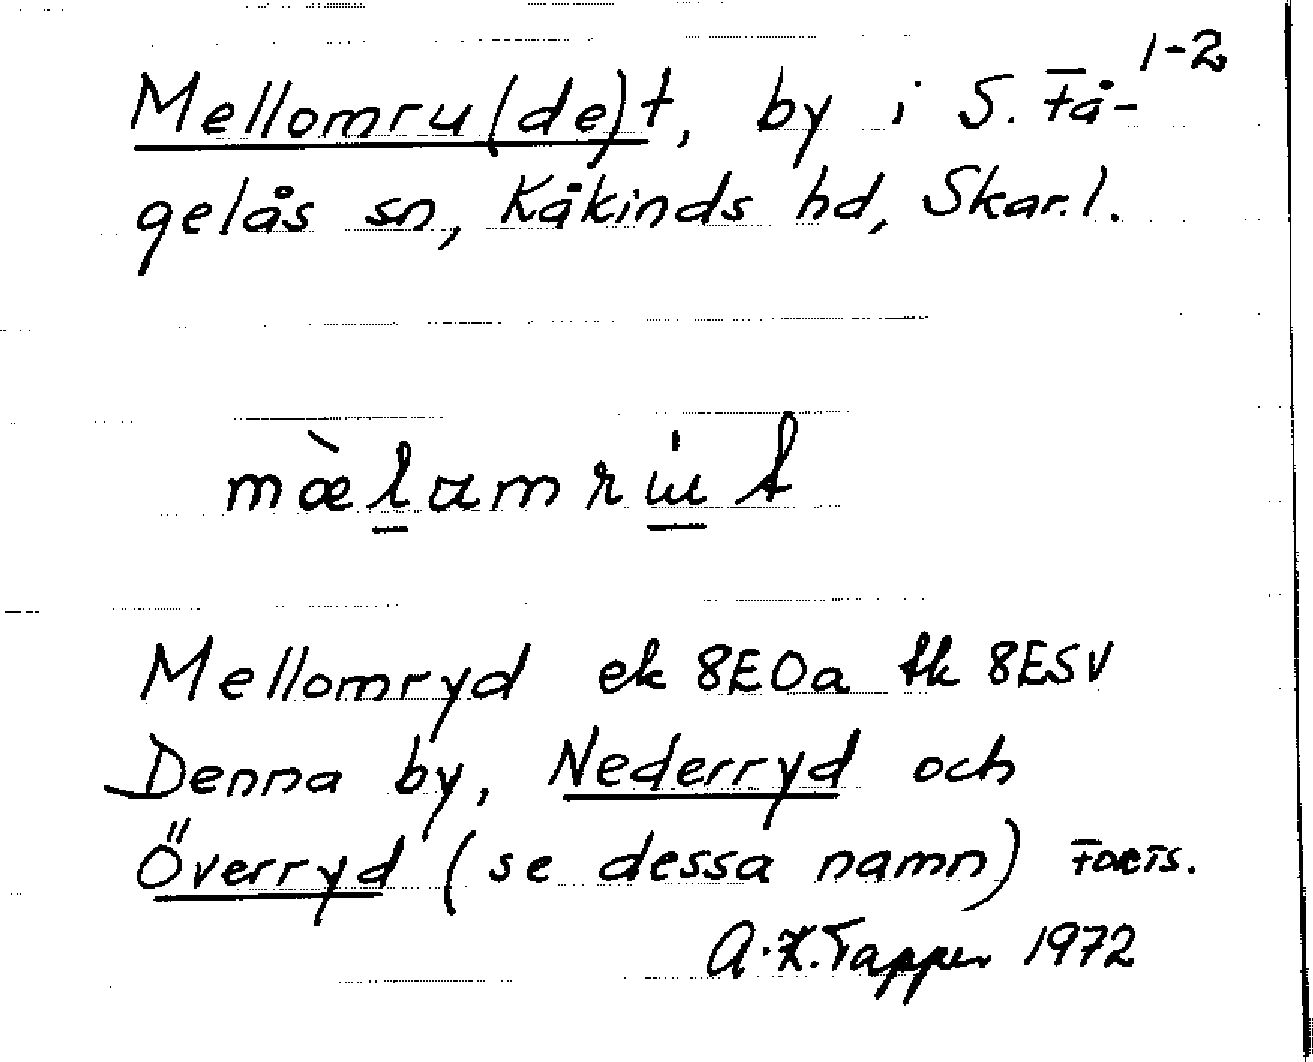 1-2
Mellomru(de)t, by i S. Få-
gelås sn, Kåkinds hd, Skar.l.
Mellomryd ek 8E0a tk 8E5V
Denna by, Nederryd och
Överryd (se dessa namn) Forts.
A.K. Tapper 1972